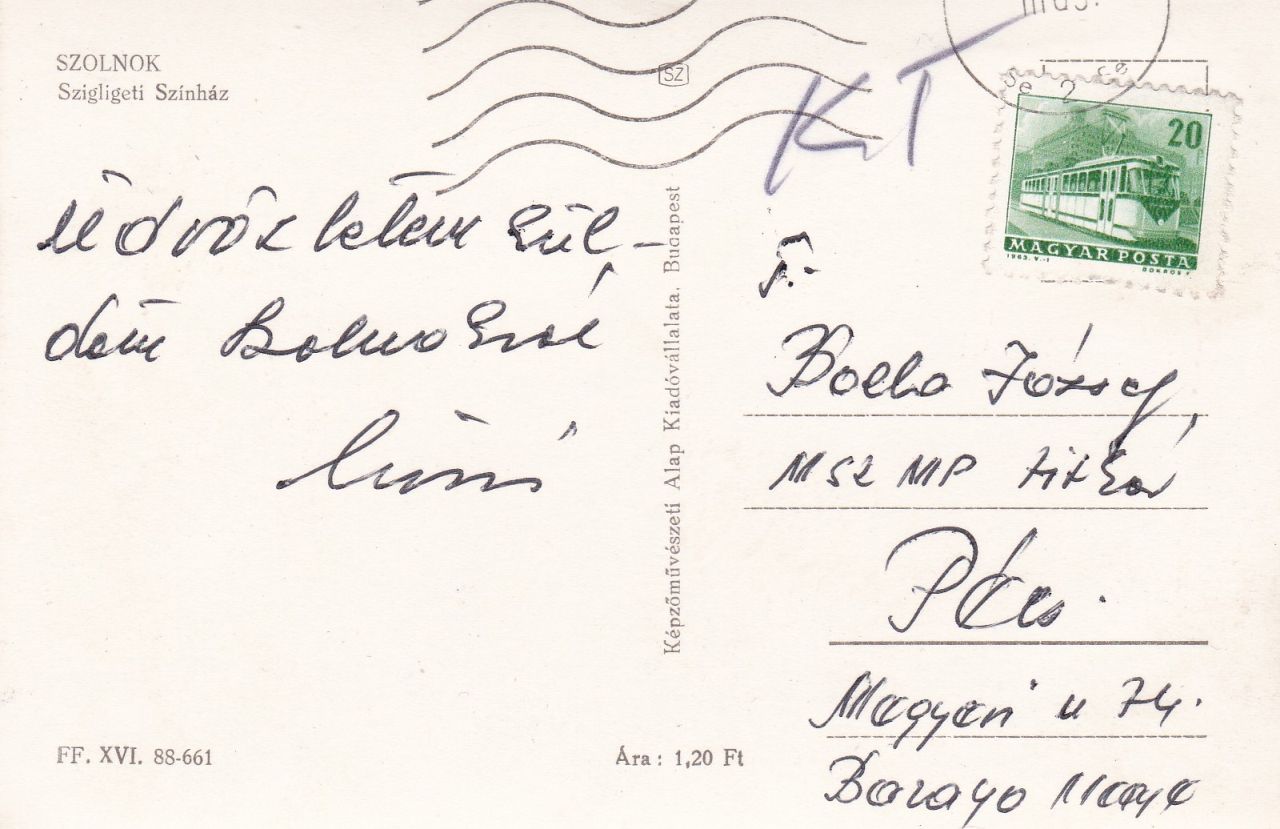 SZOLNOK
Szigligeti Színház
Üdvözletem kül-
döm Szolnokról
FF. XVI. 88-661
Ára : 1,20 Ft
SZ
Képzőművészeti Alap Kiadóvállalata, Budapest
KT
20
MAGYAR POSTA
József
MSZMP titkár
Pécs.
u 74.
Baranya Megye